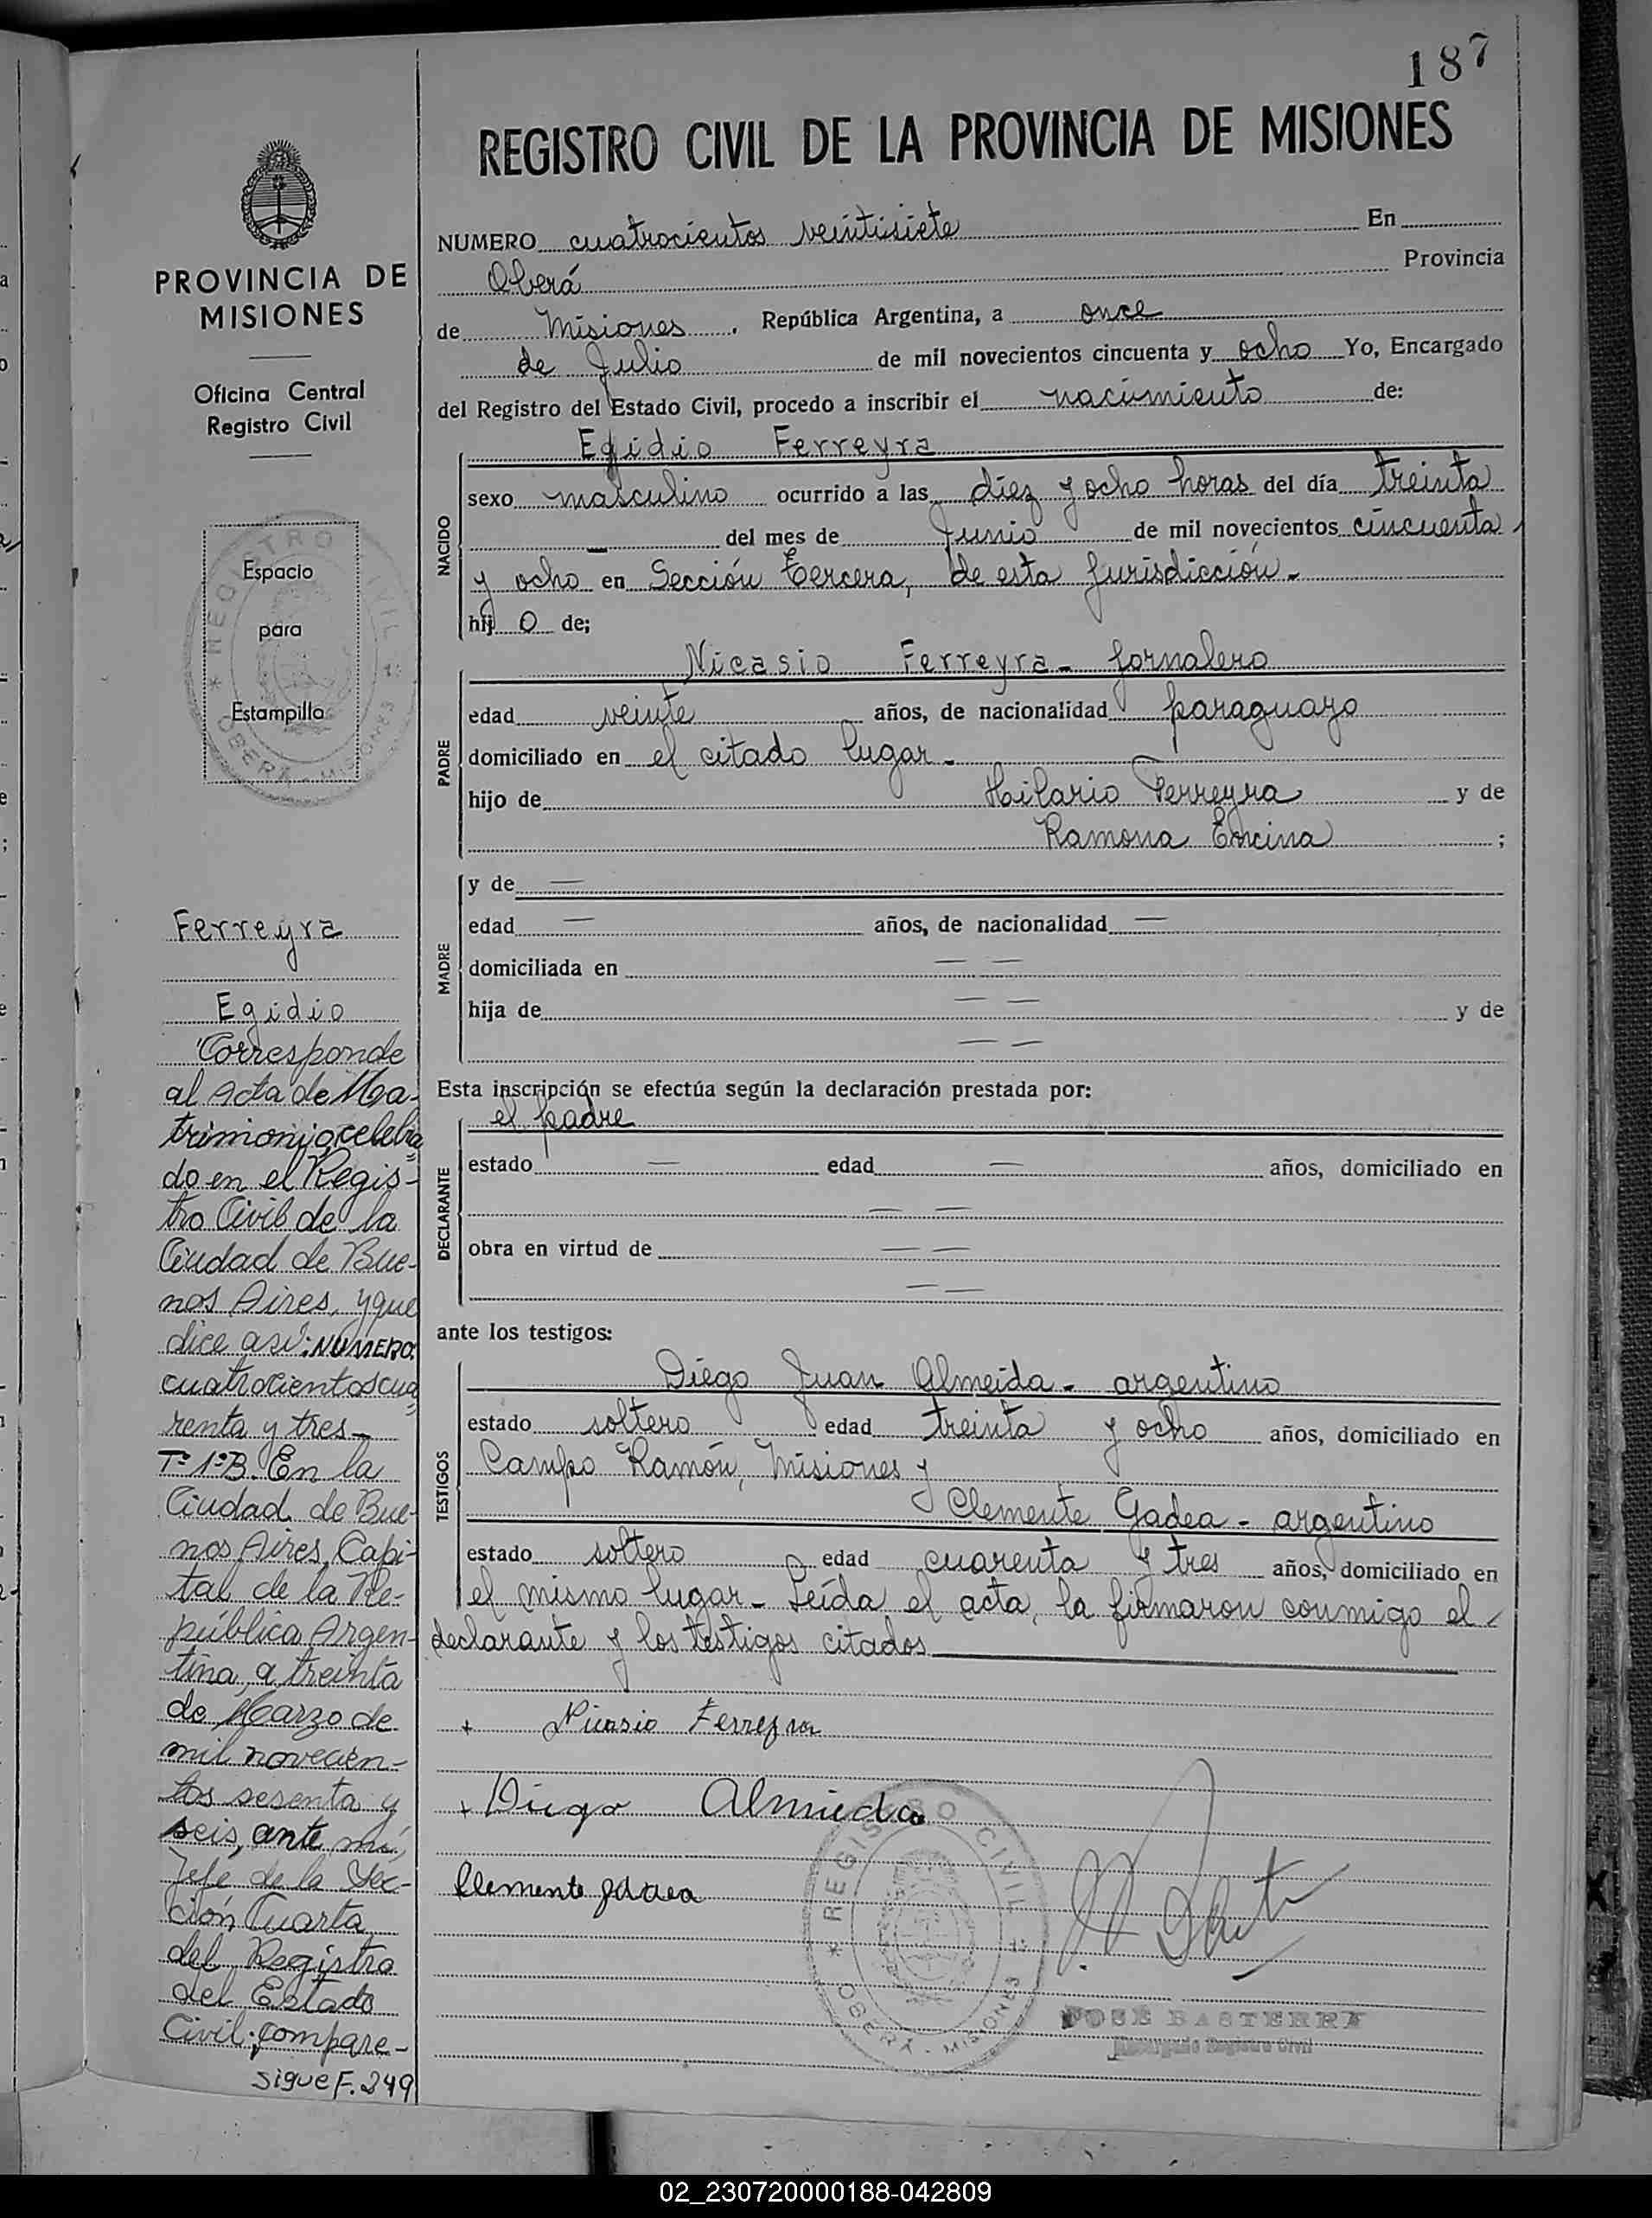 187
REGISTRO CIVIL DE LA PROVINCIA DE MISIONES
PROVINCIA DE
MISIONES
Oficina Central
Registro Civil
Espacio
para
Estampilla
REGISTRO CIVIL
* OBERA - MISIONES *
Ferreyra
Egidio
Corresponde
al acta de Ma-
trimonio, celebra
do en el Regis-
tro Civil de la
Ciudad de Bue-
nos Aires, y que
dice así: NUMERO:
cuatrocientos cua
renta y tres-
Tº 1º B. En la
Ciudad de Bue-
nos Aires, Capi-
tal de la Re-
pública Argen-
tina, a treinta
de Marzo de
mil novecien-
tos sesenta y
seis, ante mí,
Jefe de la Sec-
ción Cuarta
del Registro
del Estado
Civil; compare-
sigue F. 249
NUMERO cuatrocientos veintisiete En
Oberá Provincia
de Misiones. República Argentina, a once
de Julio de mil novecientos cincuenta y ocho Yo, Encargado
del Registro del Estado Civil, procedo a inscribir el nacimiento de:
NACIDO
Egidio Ferreyra
sexo masculino ocurrido a las diez y ocho horas del día treinta
— del mes de Junio de mil novecientos cincuenta
y ocho en Sección Tercera, de esta Jurisdicción.-
hij o de;
PADRE
Nicasio Ferreyra - jornalero
edad veinte años, de nacionalidad paraguayo
domiciliado en el citado lugar -
hijo de Hilario Ferreyra y de
Ramona Encina ;
MADRE
y de —
edad — años, de nacionalidad —
domiciliada en — —
hija de — — y de
— —
Esta inscripción se efectúa según la declaración prestada por:
DECLARANTE
el padre
estado — edad — años, domiciliado en
— —
obra en virtud de — —
— —
ante los testigos:
TESTIGOS
Diego Juan Almeida - argentino
estado soltero edad treinta y ocho años, domiciliado en
Campo Ramón, Misiones y
Clemente Gadea - argentino
estado soltero edad cuarenta y tres años, domiciliado en
el mismo lugar - Leída el acta, la firmaron conmigo el
declarante y los testigos citados
+ Nicasio Ferreyra
+ Diego Almieda
Clemente gadea
REGISTRO CIVIL
* OBERA - MISIONES *
JOSE BASTERRA
Encargado Registro Civil
02_230720000188-042809